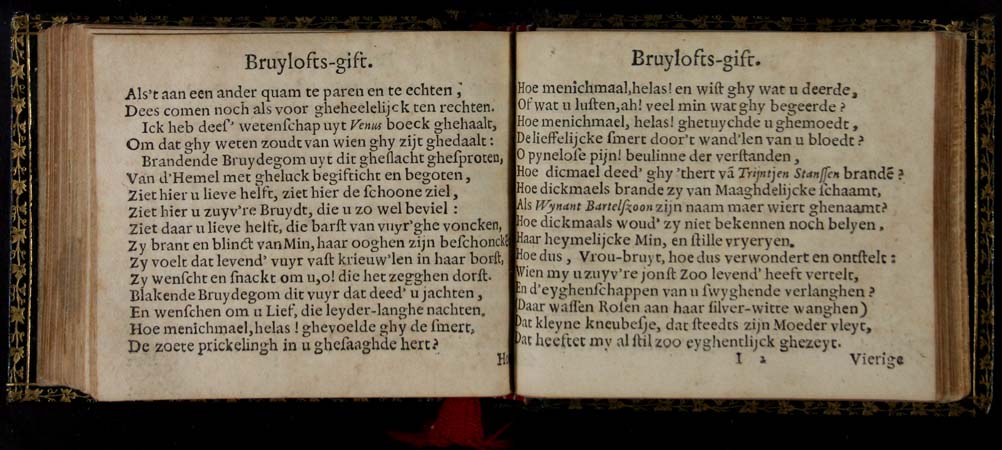 Bruylofts-gift.
Als't aan een ander quam te paren en te echten,
Dees comen noch als voor gheheelelijck ten rechten.
Ick heb deeſ' wetenſchap uyt Venus boeck ghehaalt,
Om dat ghy weten zoudt van wien ghy zijt ghedaalt:
Brandende Bruydegom uyt dit gheſlacht gheſproten,
Van d'Hemel met gheluck begifticht en begoten,
Ziet hier u lieve helft, ziet hier de ſchoone ziel,
Ziet hier u zuyv're Bruydt, die u zo wel beviel:
Ziet daar u lieve helft, die barſt van vuyr'ghe voncken,
Zy brant en blinct van Min, haar ooghen zijn beſchoncke
Zy voelt dat levend' vuyr vaſt krieuw'len in haar borſt,
Zy wenſcht en ſnackt om u, o! die het zegghen dorſt.
Blakende Bruydegom dit vuyr dat deed' u jachten,
En wenſchen om u Lief, die leyder-langhe nachten.
Hoe menichmaal, helas! ghevoelde ghy de ſmert,
De zoete prickelingh in u gheſaaghde hert?
Ho
Bruylofts-gift.
Hoe menichmaal, helas! en wiſt ghy wat u deerde,
Of wat u luſten, ah! veel min wat ghy begeerde?
Hoe menichmael, helas! ghetuychde u ghemoedt,
De lieffelijcke ſmert door't wand'len van u bloedt?
O pyneloſe pijn! beulinne der verſtanden,
Hoe dicmael deed' ghy 'thert vā Trijntjen Stanſſen brandē?
Hoe dickmaels brande zy van Maaghdelijcke ſchaamt,
Als Wynant Bartelſzoon zijn naam maer wiert ghenaamt?
Hoe dickmaals woud' zy niet bekennen noch belyen,
Haar heymelijcke Min, en ſtille vryeryen.
Hoe dus, Vrou-bruyt, hoe dus verwondert en ontſtelt:
Wien my u zuyv're jonſt zoo levend' heeft vertelt,
En d'eyghenſchappen van u ſwyghende verlanghen?
(Daar waſſen Roſen aan haar ſilver-witte wanghen)
Dat kleyne kneubeſje, dat ſteedts zijn Moeder vleyt,
Dat heeftet my al ſtil zoo eyghentlijck ghezeyt.
I 2 Vierige